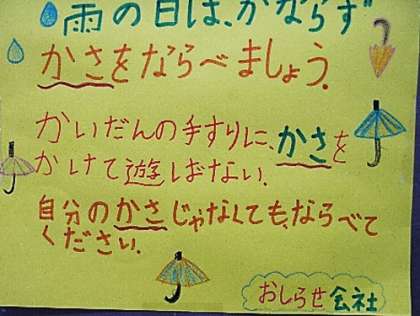 雨の日は、かならず
かさをならべましょう。
かいだんの手すりに、かさを
かけて遊ばない。
自分のかさじゃなくても、ならべて
ください。
おしらせ会社